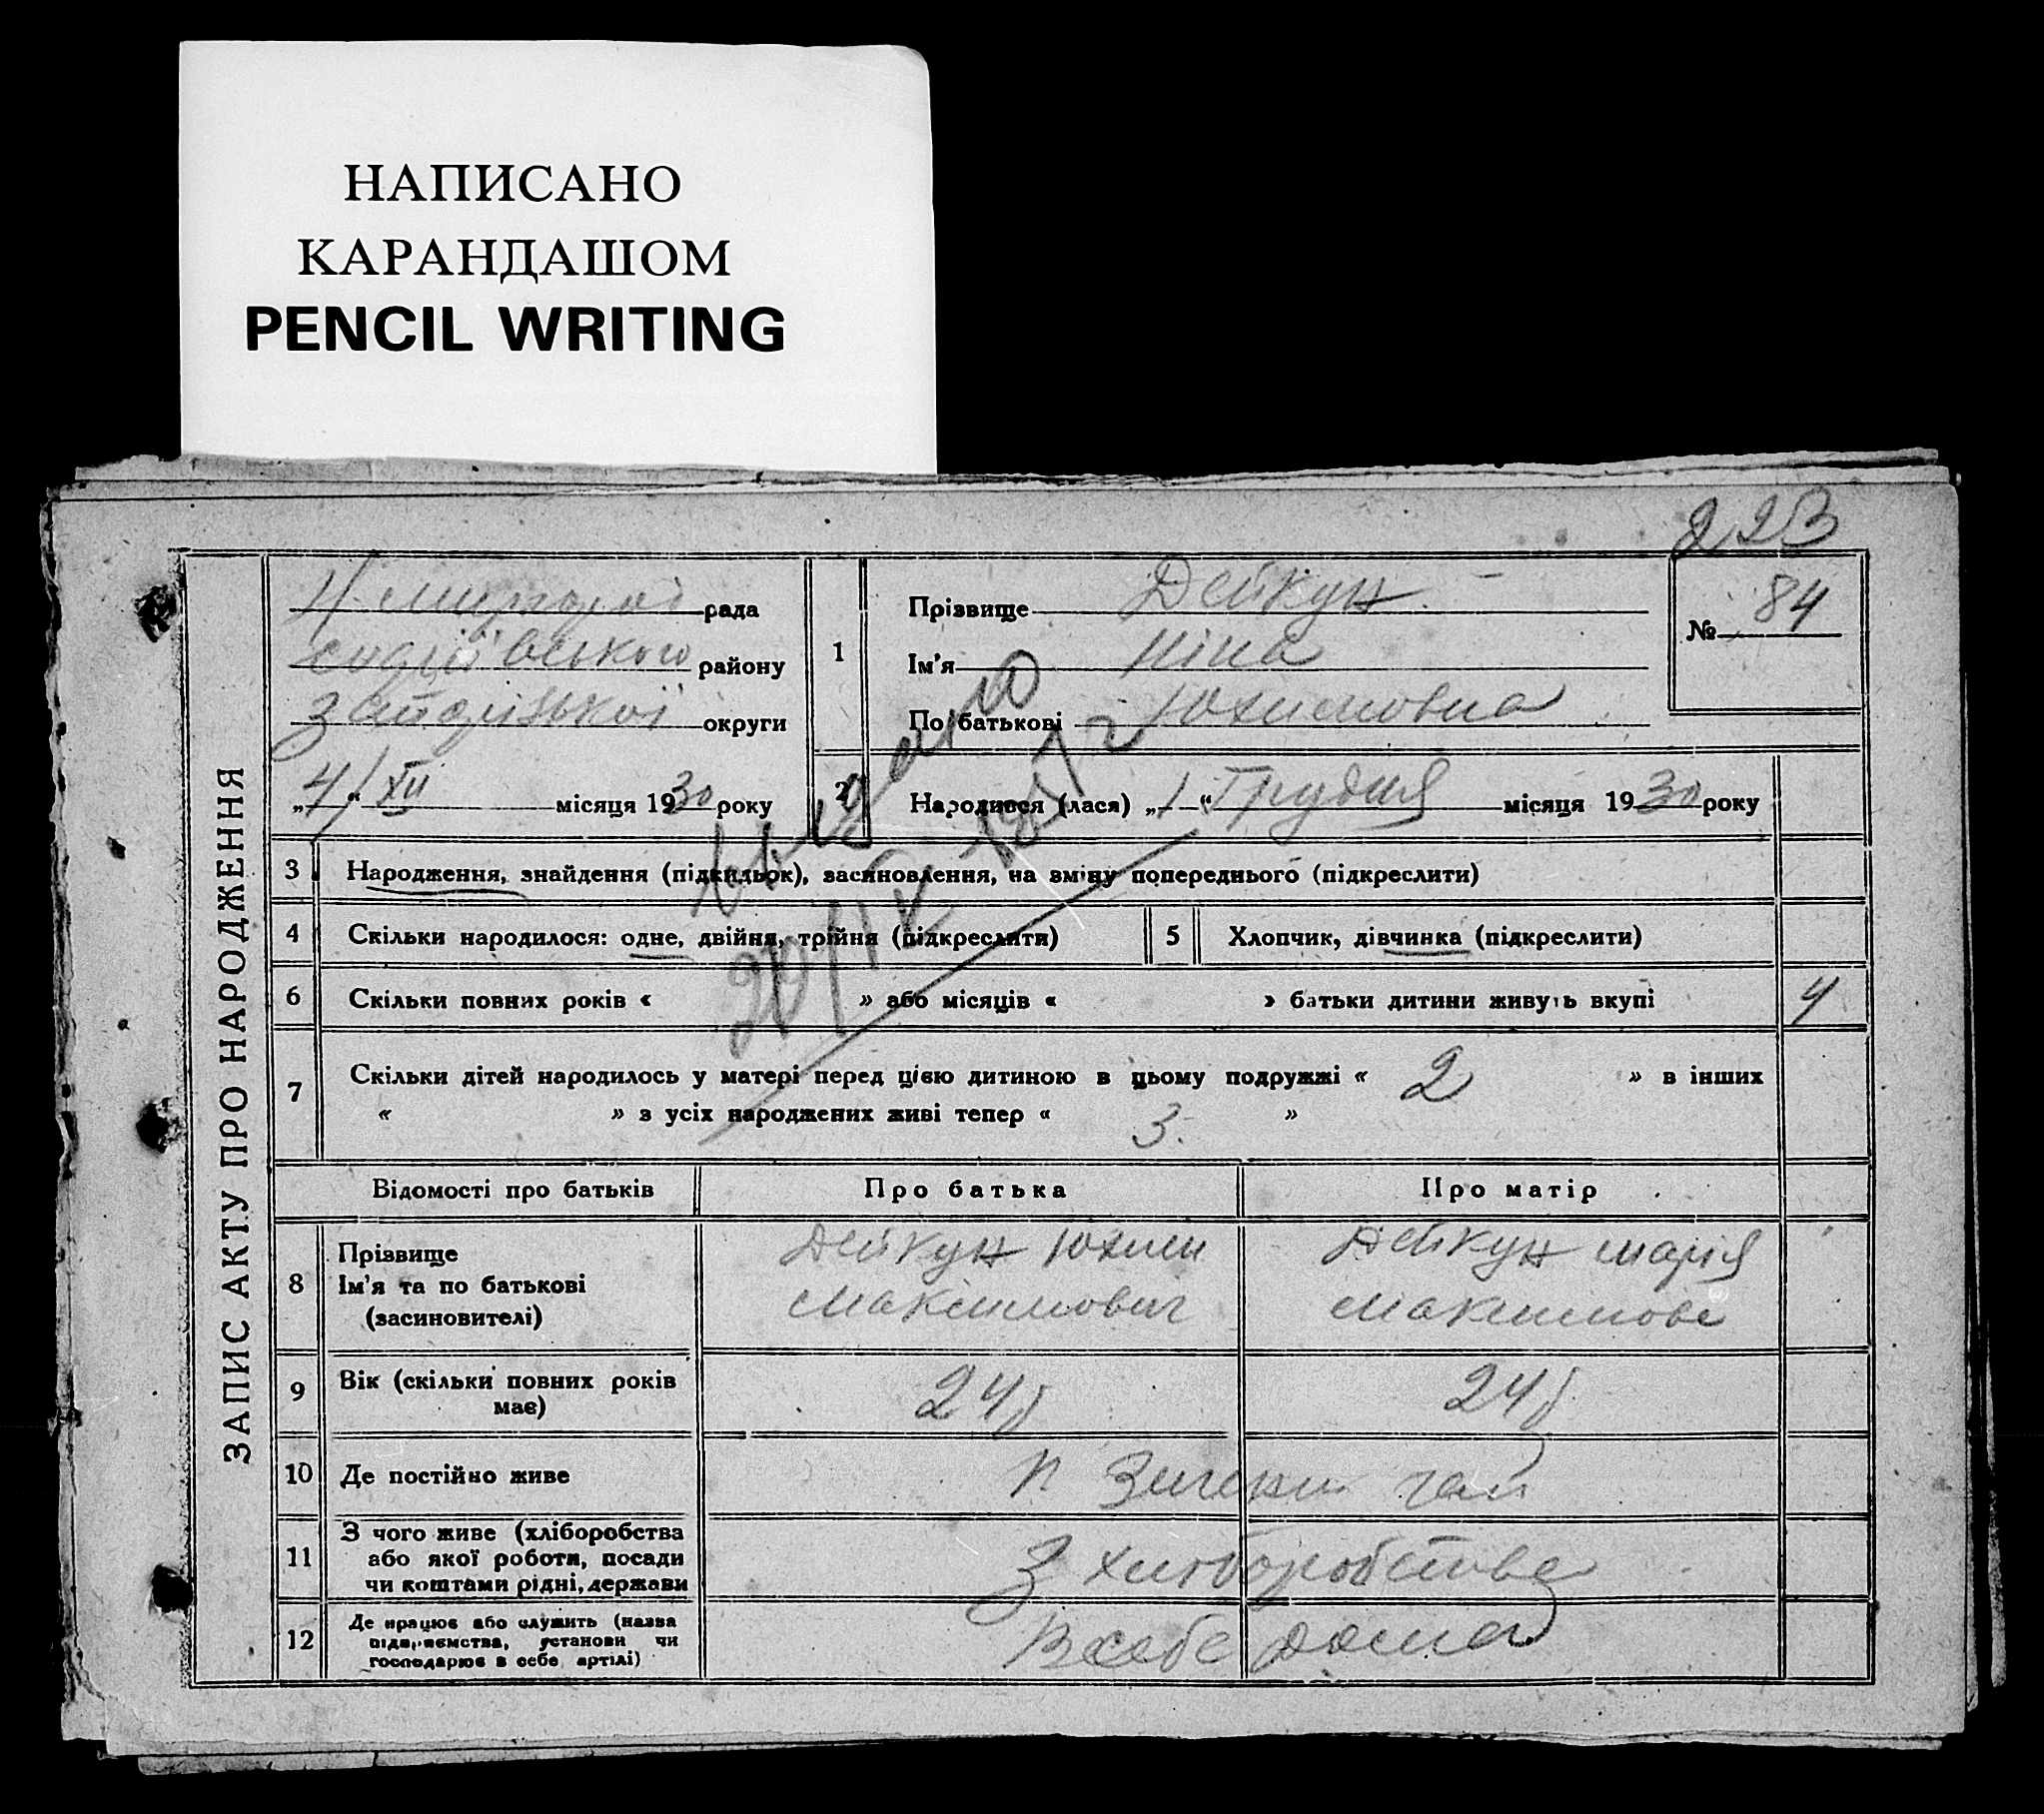 НАПИСАНО
КАРАНДАШОМ
PENCIL WRITING
223
ЗАПИС АКТУ ПРО НАРОДЖЕННЯ
рада
району
округи
„4“ XII місяця 1930 року
1
Прізвище Дейкун
Ім'я Ніна
По батькові Юхимовна
№ 84
2
Народився (лася) „1“ Грудня місяця 1930 року
3 Народження, знайдення (підкидьок), засиновлення, на вміну попереднього (підкреслити)
4 Скільки народилося: одне, двійня, трійня (підкреслити)
5 Хлопчик, дівчинка (підкреслити)
6 Скільки повних років « » або місяців « » батьки дитини живуть вкупі 4
7 Скільки дітей народилось у матері перед цією дитиною в цьому подружжі « 2 » в інших
« » з усіх народжених живі тепер « 3 »
Відомості про батьків Про батька Про матір
8 Прізвище
Ім'я та по батькові
(засиновителі)
Дейкун Юхим
Максимович
Дейкун Марія
Максимове
9 Вік (скільки повних років
має)
24
24
10 Де постійно живе
гай
11 З чого живе (хліборобства
або якої роботи, посади
чи коштами рідні, держави
З хліборобства
12 Де працює або служить (назва
підприємства, установи чи
господарює в себе артілі)
В себе дома